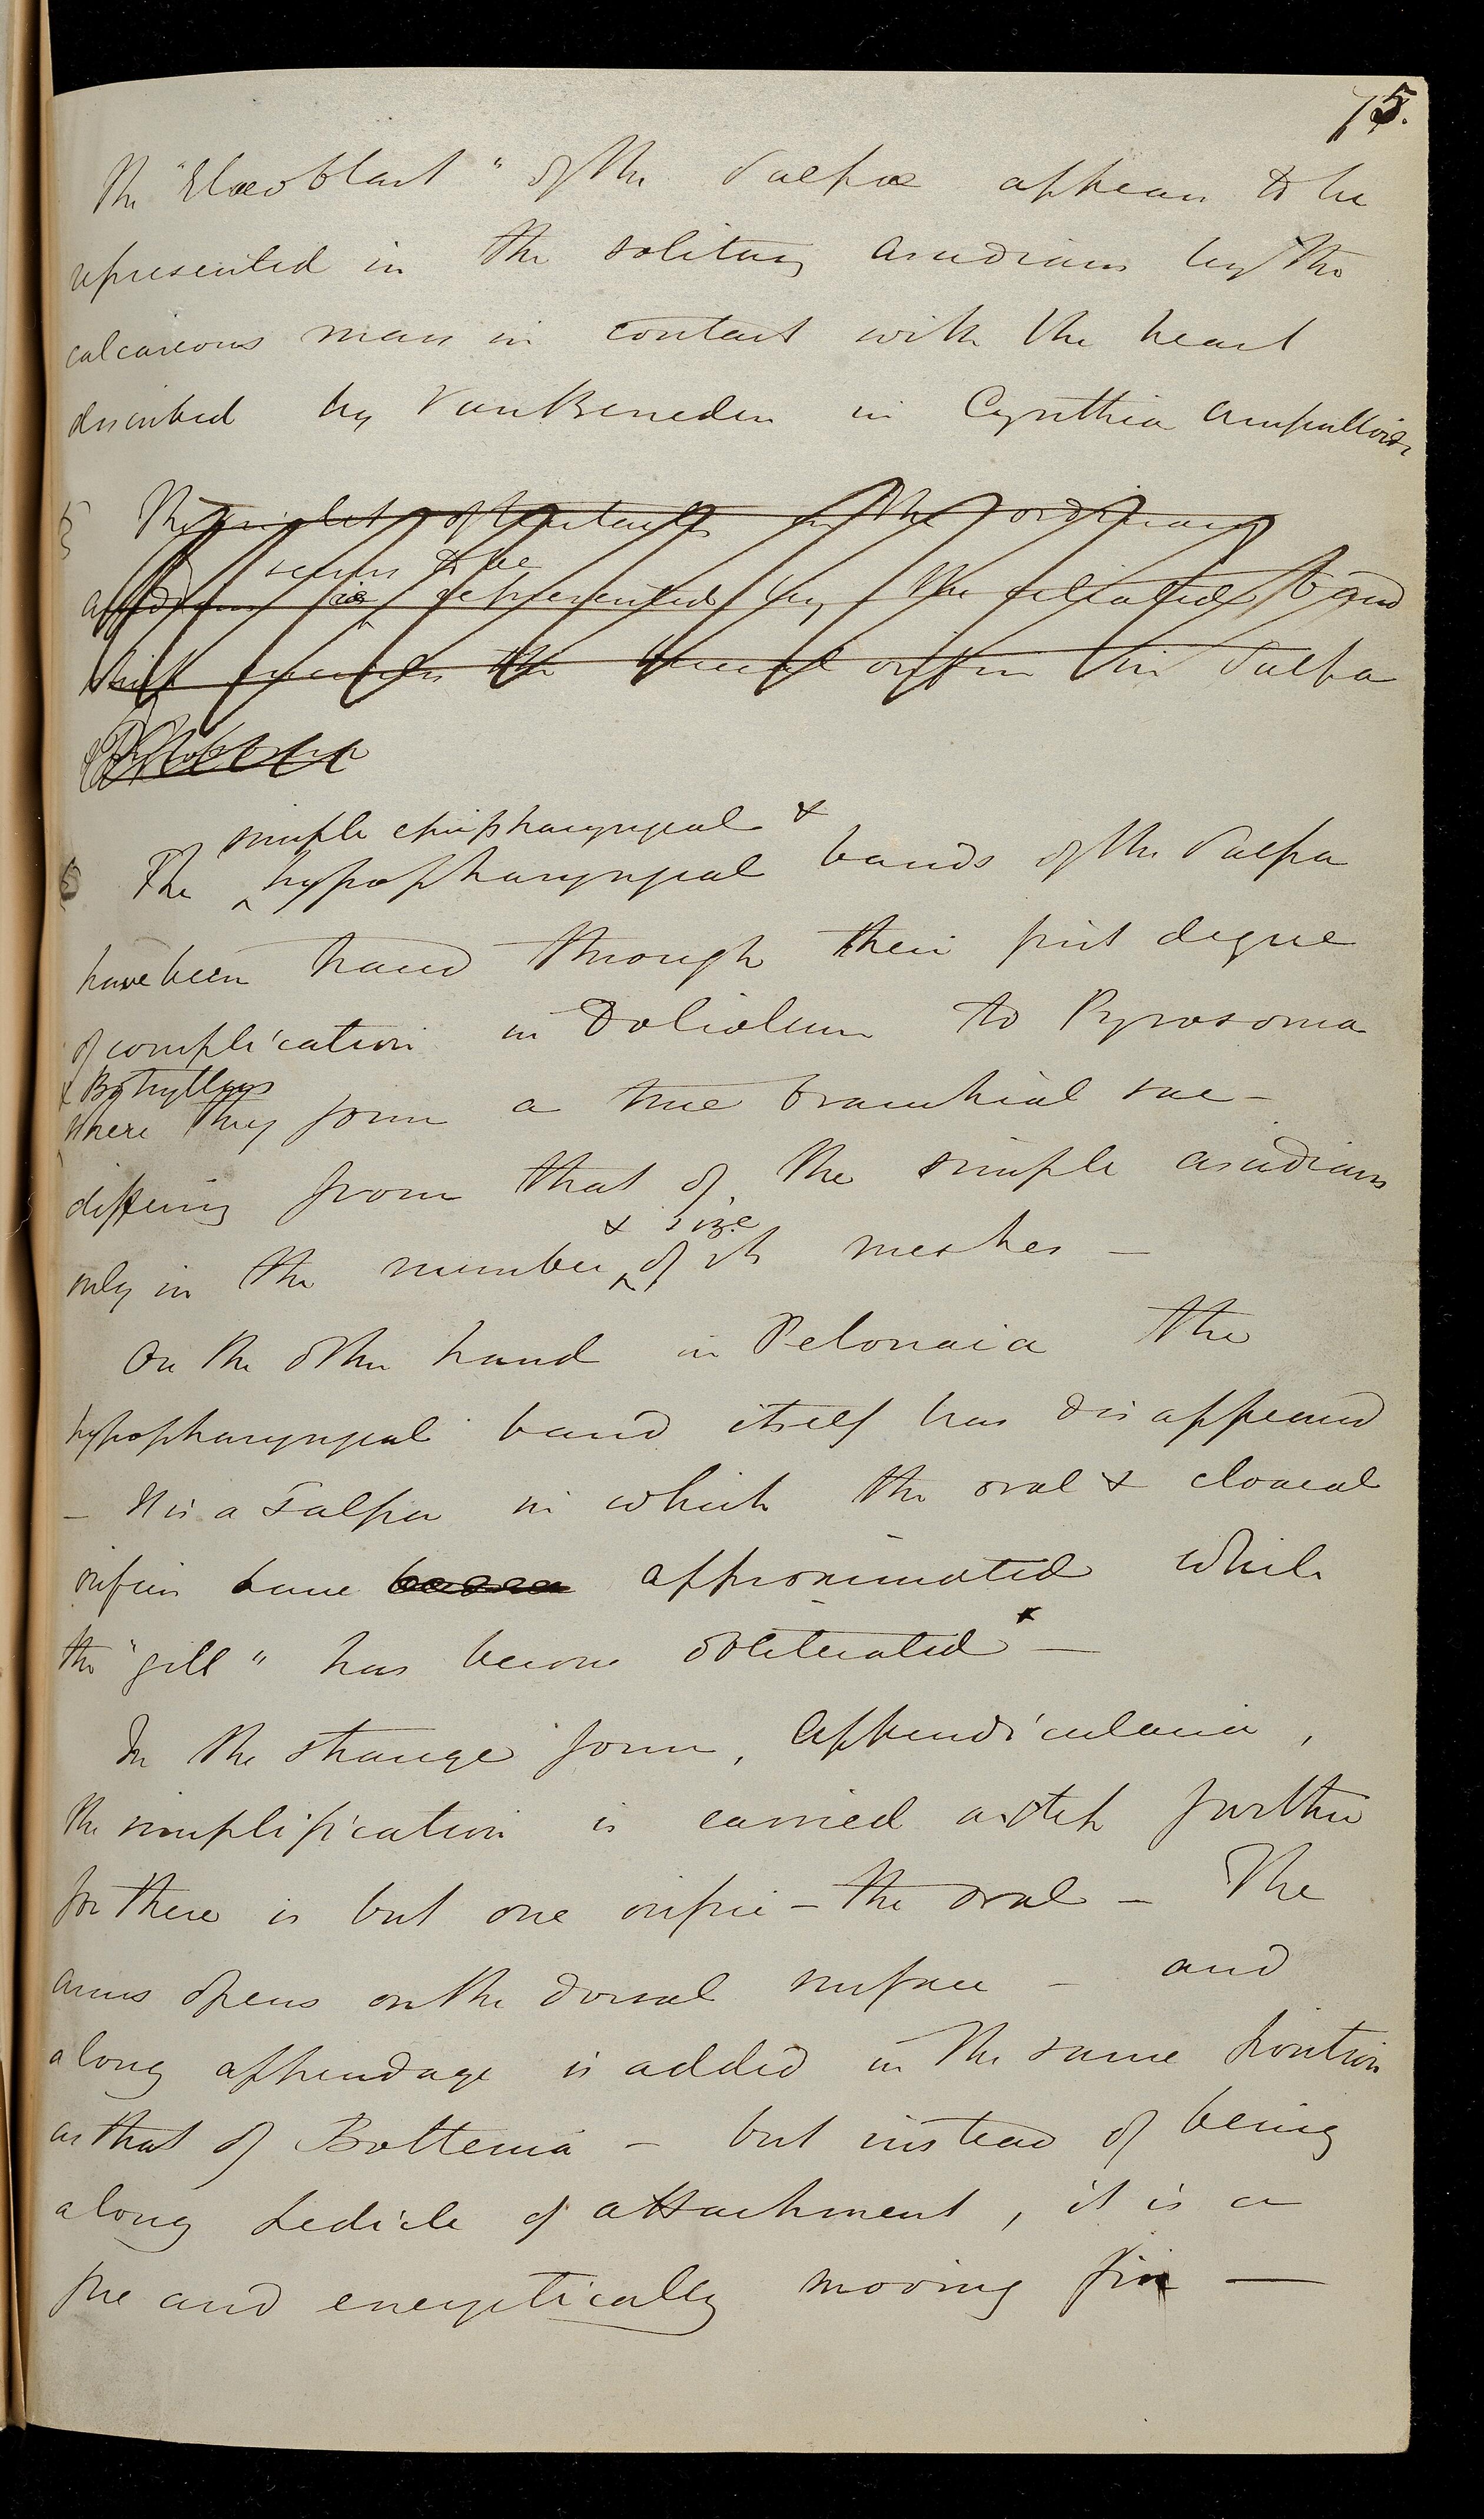 75.
The "Elæoblast" of the Salpæ appears to be
represented in the solitary ascidians by the
calcareous mass in contact with the heart
described by Van Beneden in Cynthia ampulloides
5 The circlet of tentacles in the ordinary
seems to be
ascidians is represented by the ciliated band
which encircles the buccal orifice in Salpa
simple epipharyngeal &
6 The ^ hypopharyngeal bands of the Salpa
have been traced through their first degree
of complication in Doliolum to Pyrosoma
& Botryllus
where they form a true branchial sac —
differing from that of the simple ascidians
& size
only in the number ^ of its meshes —
On the other hand in Pelonaia the
hypopharyngeal band itself has disappeared
— It is a Salpa in which the oral & cloacal
orifices have approximated while
the "gill" has become obliterated x —
In the strange form, Appendicularia,
the simplification is carried a step further
for there is but one orifice — the oral — The
anus opens on the dorsal surface — and
a long appendage is added in the same position
as that of Boltenia — but instead of being
a long pedicle of attachment, it is a
free and energetically moving fin —